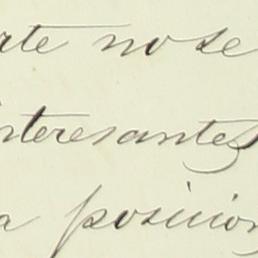 rte no se
nteresantes
a posicion